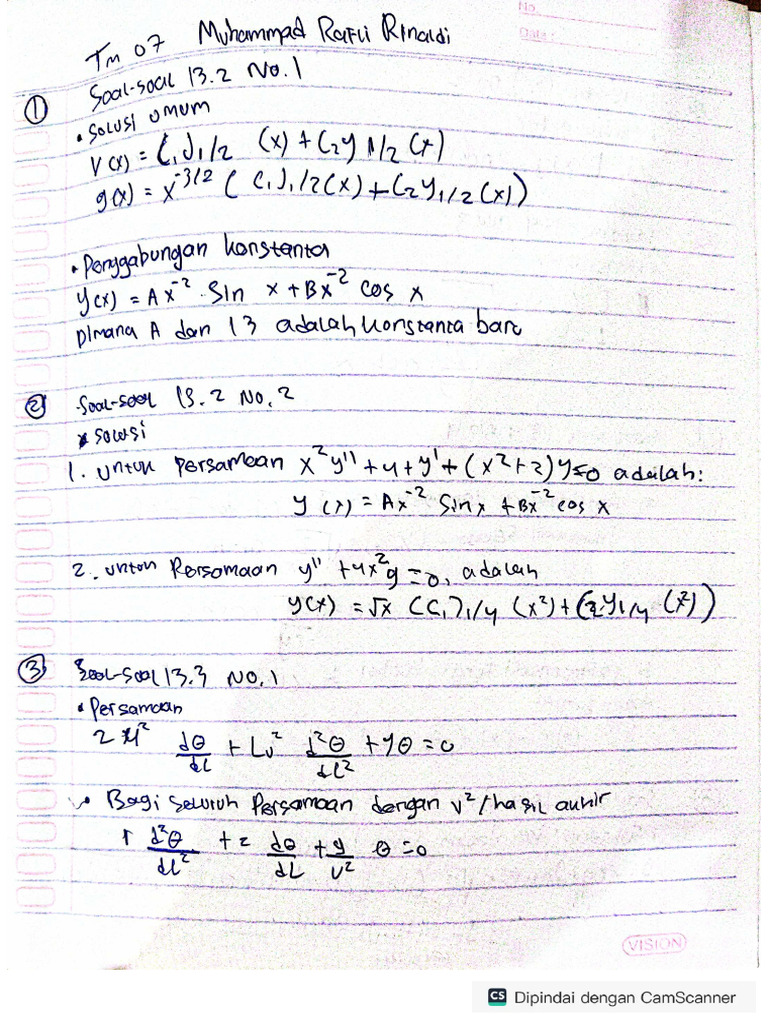 No.
Date:
Tm 07 Muhammad Rafli Rinaldi
Soal-soal 13.2 No.1
① • Solusi umum
V(x) = C₁J1/2 (x) + C₂y 1/2 (x)
y(x) = x^-3/2 ( C₁J1/2(x) + C₂Y1/2(x))
• Penggabungan konstanta
y(x) = Ax^-2 . Sin x + Bx^-2 cos x
Dimana A dan B adalah konstanta baru
② Soal-soal 13.2 No.2
* solusi
1. Untuk Persamaan x²y'' + 4 + y' + (x²+2)y=0 adalah:
y (x) = Ax^-2 Sin x + Bx^-2 cos x
2. Untuk Persamaan y'' + 4x²y = 0, adalah
y(x) = √x (C₁J1/4 (x²) + C₂Y1/4 (x²))
③ Soal-soal 13.3 No.1
• Persamaan
dθ/dL + Lv² d²θ/dL² + gθ = 0
• Bagi seluruh Persamaan dengan v²/hasil akhir
d²θ/dL² + 2 dθ/dL + g/v² θ = 0
VISION
CS Dipindai dengan CamScanner